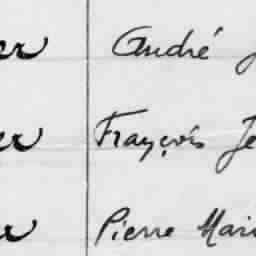 er André J
er François Je
er Pierre Mari